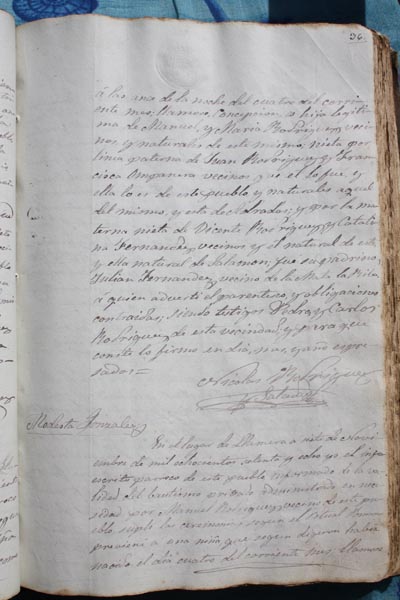 36
á las once de la noche del cuatro del corrien
te mes, llamose, Concepcion, es hija legiti
ma de Manuel, y Maria Rodriguez, veci
nos y naturales de este mismo; nieta por
linea paterna de Juan Rodriguez y Fran
cisca vecinos que el lo fue, y
ella lo es de este pueblo y naturales aquel
del mismo, y esta de y por la ma
terna nieta de Vicente Rodriguez y Catali
na Fernandez, vecinos y el natural de este
y ella natural de fue su padrino
Julian Fernandez, vecino de la
á quien adverti el parentesco, y obligaciones
contraidas; siendo testigos Pedro, y Carlos
Rodriguez, de esta vecindad, y para que
conste lo firmo en dia, mes, y año espre
sados=
Nicolas Rodriguez
Modesta Gonzalez
En el lugar de á siete de Novi
embre de mil ochocientos setenta y ocho yo el infra
escrito parroco de este pueblo informado de la va
lidad del bautismo privado
por Manuel Rodriguez, vecino de este pue
blo supli las ceremonias segun el ritual Romano
á una niña que segun dijeron habia
nacido el dia cuatro del corriente mes, llamose